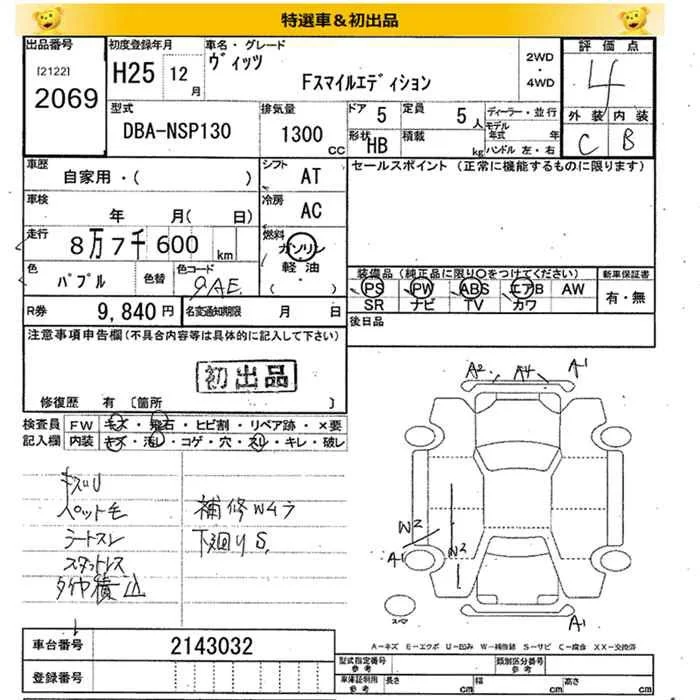 特選車＆初出品
出品番号
[2122]
2069
初度登録年月
H25 12月
車名・グレード
ヴィッツ
Fスマイルエディション
2WD
・
4WD
評価点
4
外装 内装
C B
型式
DBA-NSP130
排気量
1300 CC
ドア 5
定員 5人
形状 HB
積載 kg
ディーラー・並行
モデル年式 年
ハンドル 左・右
車歴
自家用・( )
シフト AT
セールスポイント (正常に機能するものに限ります)
車検
年 月( 日)
冷房 AC
走行
8万7千600 km
燃料
ガソリン
軽油
( )
色
パプル
色替
色コード
9AE
装備品 (純正品に限り○をつけてください)
PS PW ABS エアB AW
SR ナビ TV カワ
新車保証書
有・無
R券 9,840円
名変通知期限 月 日
後日品
注意事項申告欄(不具合内容等は具体的に記入して下さい)
初出品
修復歴 有 〔箇所 〕
検査員記入欄
FW キズ・飛石・ヒビ割・リペア跡・×要
内装 キズ・汚れ・コゲ・穴・スリ・キレ・破レ
キズU
ペット毛
シートスレ
スタットレス
タイヤ積込
補修Wムラ
下廻りS
A2 A4 A1
W2
A1
W2
A1
スマ
A－キズ E－エクボ U－凹み W－補修跡 S－サビ C－腐食 XX－交換済
車台番号 2143032
登録番号
型式指定番号
参考
類別区分番号
参考
車庫証明用
参考
長さ cm
幅 cm
高さ cm